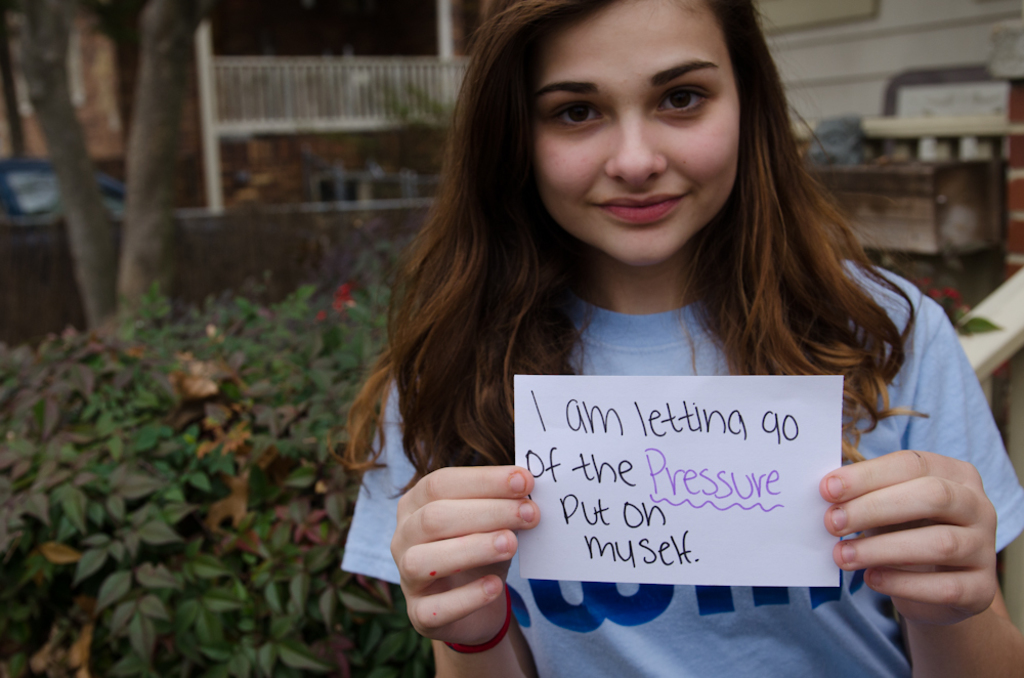 I am letting go
of the Pressure
Put on
myself.